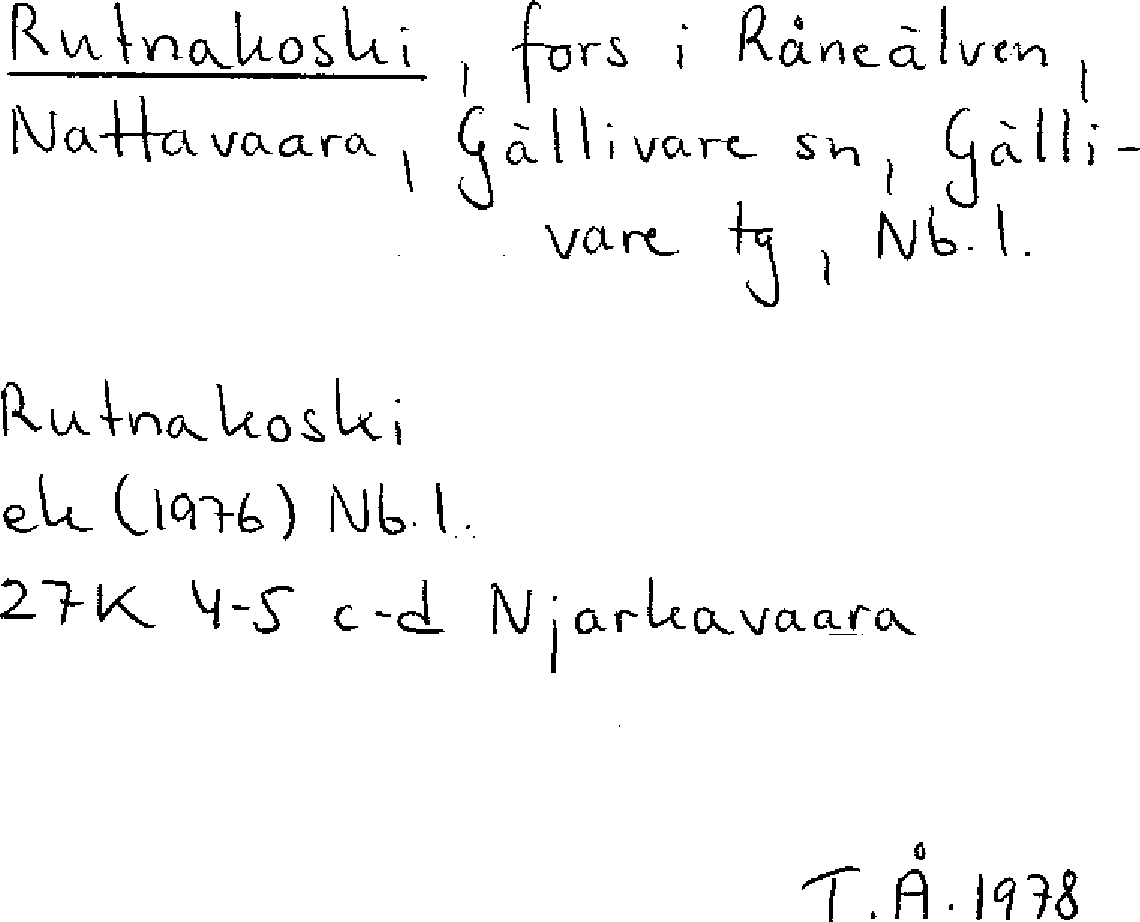 Rutnakoski, fors i Råneälven,
Nattavaara, Gällivare sn, Gälli-
vare tg, Nb.l.
Rutnakoski
ek (1976) Nb.l.
27K 4-5 c-d Njarkavaara
T.Å. 1978